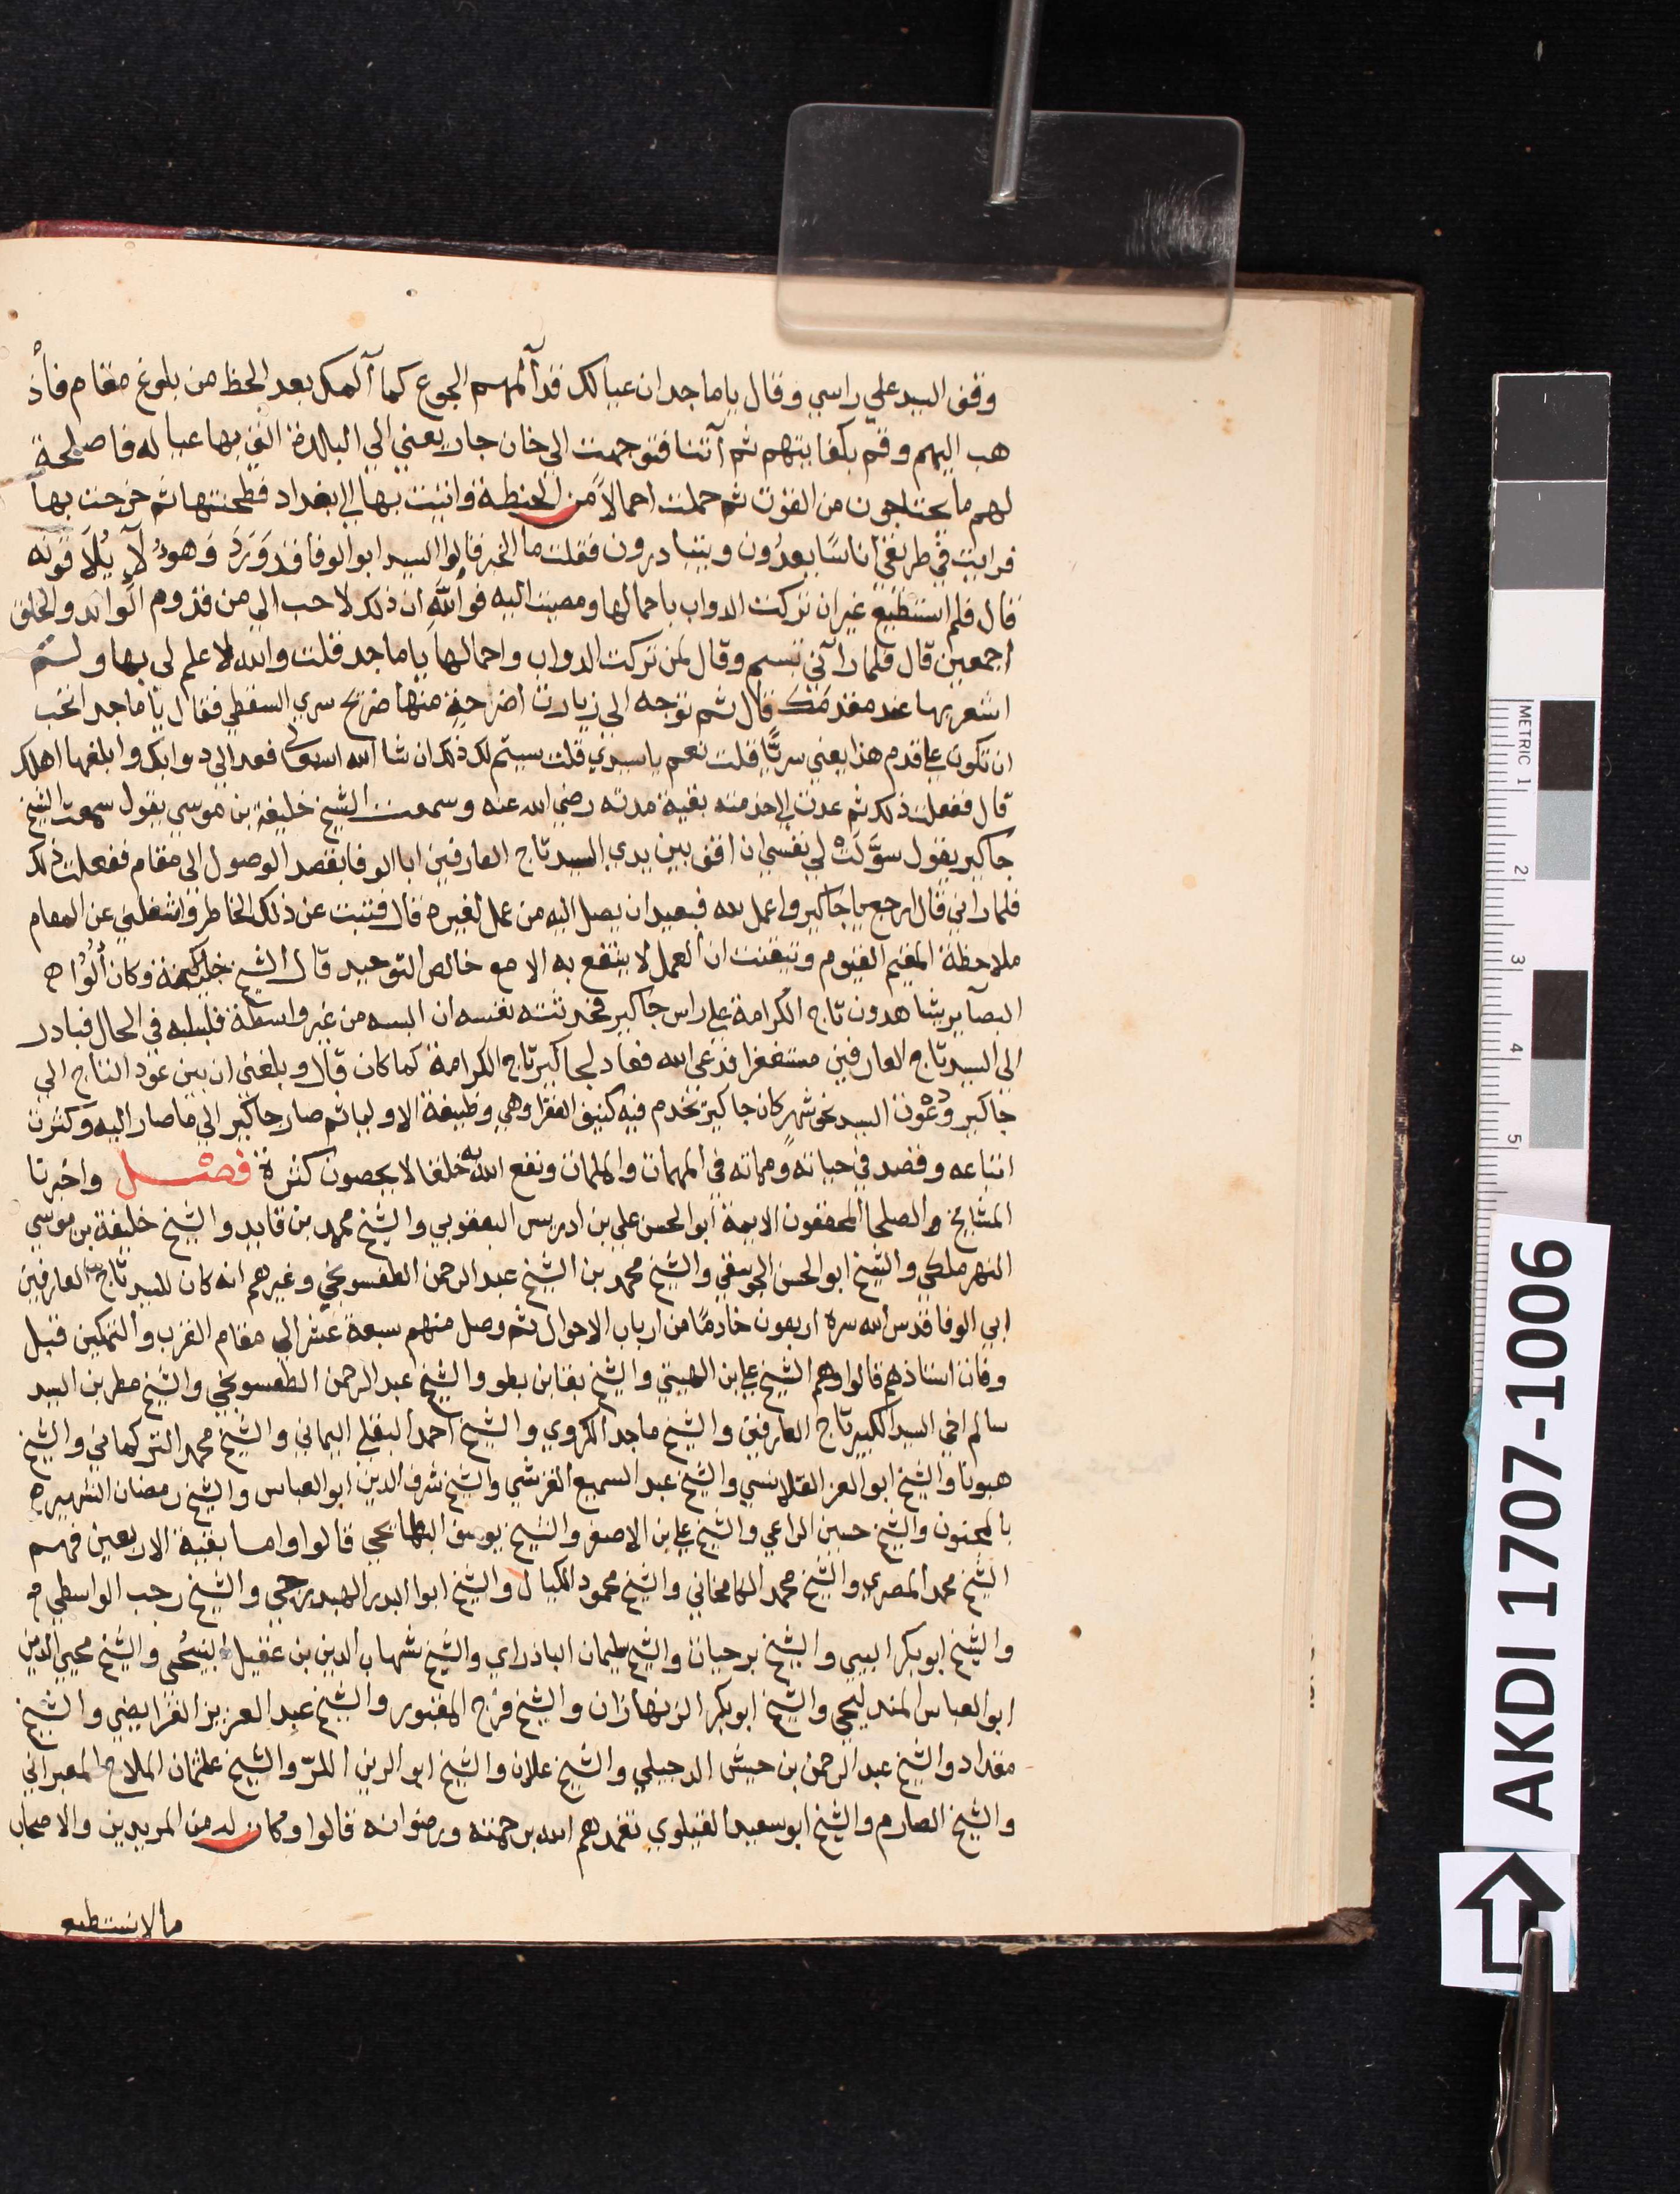 وقف السيد علي راسي وقال يا ماجد ان عيالك قد آلمهم الجوع كما آلمك بعد الحظ من بلوغ مقام فأذ
هب اليهم وقم بكفايتهم ثم آتنا فتوجهت الى خان جان يعني الي البلدة التي بها عياله فاصلحة
لهم ما يحتاجون من القوت ثم حملت احمالاً من الحنطة واتيت بها الي بغداد فطحنتها ثم خرجت بها
فرايت في طريقي اناسًا يعدُون ويتبادرون فقلت ما الخبر قالوا السيد ابو الوفا قد وَرَدَ وَهوُلآء يُلاَقونه
قال فلم استطيع غير ان تركت الدواب باحمالها ومضيت اليه فوالله ان ذلك لاحب الي من قدوم الوالد والخلق
اجمعين قال فلما رآني تبسم وقال لمن تركت الدواب واحمالها يا ماجد فقلت والله لا علم لي بها ولم
اشعر بها عند مقدمك قال ثم توجه الي زيارت اضرحة منها ضريح سري السقطي فقال يا ماجد اتحب
ان تكون على قدم هذا يعني سريًّا قلت نعم يا سيدي قلت سيتم لك ذلك ان شا الله تعالى فعد الي دوابك وابلغها اهلك
قال ففعلت ذلك ثم عدت الي خدمته بقية مدته رضي الله عنه وسمعت الشيخ خليفة بن موسي يقول سمعت الشيخ
جاكير يقول سوَّلَتْ لي نفسي ان اقف بين يدي السيد تاج العارفين ابا الوفا بقصد الوصول الى مقام ففعلت ذلك
فلما راني قال ارجع يا جاكير واعمل لله فبعيد ان يصل اليه من عمل لغيره قال فتبت عن ذلك الخاطر واشغلني عن المقام
ملاحظة المقيم القيوم وتيقنت ان العمل لا ينتفع به الا مع خالص التوحيد قال الشيخ خليفة وكان أُلُوا
البصآير يشاهدون تاج الكرامة على راس جاكير فحدثته نفسه ان البسه من غير واسطة فسلبه في الحال فبادر
الي السيد تاج العارفين مستغفرا فدعى الله فعاد لجاكير تاج الكرامة كما كان قال وبلغني ان بين عود التاج الي
جاكير ودعوت السيد نحو شهر كان جاكير يخدم فيه كنيف الفقرا وهي وظيفة الاوليا ثم صار جاكير الي ما صار اليه وكثرت
اتباعه وقصد في حياته ومماته في المهمات والملمات ونفع الله به خلقا لا يحصون كثرة فصل واخبرنا
المشايخ والصلحا المحققون الايمة ابو الحسن علي بن ادريس اليعقوبي والشيخ محمد بن قايد والشيخ خليفة بن موسي
النهرملكي والشيخ ابو الحسن الجوسقي والشيخ محمد بن الشيخ عبد الرحمن الطفسونجي وغيرهم انه كان للسيد تاج العارفين
ابي الوفا قدس الله سره اربعون خادمًا من ارباب الاحوال ثم وصل منهم سبعة عشر الي مقام القرب والتمكين قبل
وفات استاذهم قالوا وهم الشيخ علي ابن الهيتي والشيخ بقا بن بطو والشيخ عبد الرحمن الطفسونجي والشيخ مطر بن السيد
سالم اخي السيد الكبير تاج العارفين والشيخ ماجد الكروي والشيخ احمد البقلي اليماني والشيخ محمد التركماني والشيخ
هبونا والشيخ ابو العز القلانسي والشيخ عبد السميع القرشي والشيخ شرف الدين ابو العباس والشيخ رمضان الشهير
بالمجنون والشيخ حسين الراعي والشيخ علي ابن الاصفر والشيخ يوسف البطايحي قالوا واما بقية الاربعين فمهم
الشيخ محمد المصري والشيخ محمد الكامخاني والشيخ محمود الكيال والشيخ ابو البدر الهبدرجي والشيخ رجب الواسطي
والشيخ ابو بكر البيي والشيخ برحيان والشيخ سليمان البادراي والشيخ شهاب الدين بن عقيل والشيخ محيي الدين
ابو العباس المندليجي والشيخ ابو بكر الزنهازان والشيخ فرج المقبور والشيخ عبد العزيز الفرايضي والشيخ
مقداد والشيخ عبد الرحمن بن حبيش الدجيلي والشيخ علان والشيخ ابو الزين المرّ والشيخ عثمان الملاح المعبراني
والشيخ الصارم والشيخ ابو سعيد القيلوي تغمدهم الله برحمته ورضوانه قالوا وكان له من المريدين والاصحاب
ما لا نستطيع
AKDI 1707-1006
METRIC 1 2 3 4 5